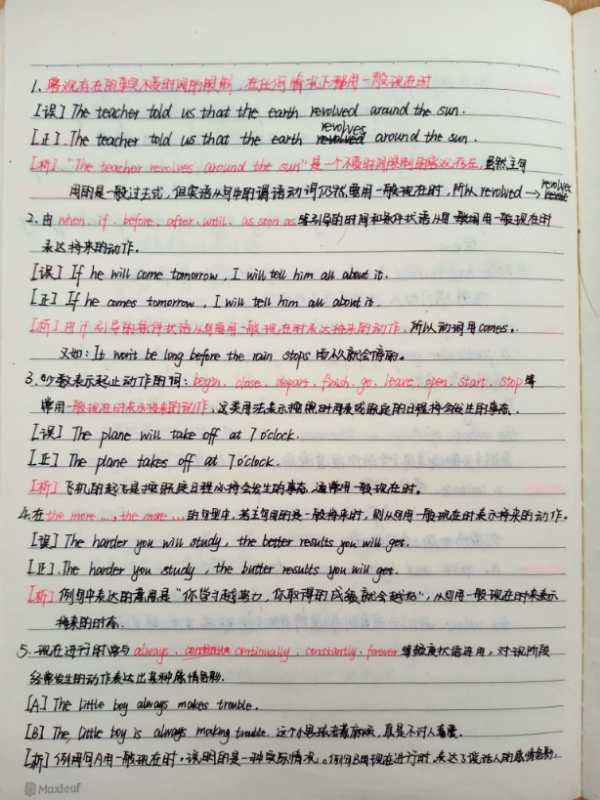 1. 客观存在的事实不受时间的限制,在任何情况下都用一般现在时
[误] The teacher told us that the earth revolved around the sun.
revolves
[正]. The teacher told us that the earth revolved around the sun.
[析] "The teacher revolves around the sun" 是一个不受时间限制的客观存在,虽然主句
用的是一般过去式,但宾语从句中的谓语动词仍然要用一般现在时,所以 revolved → revolves
2. 由 when, if, before, after, until, as soon as 等引导的时间和条件状语从句一般用一般现在时
表达将来的动作。
[误] If he will come tomorrow, I will tell him all about it.
[正] If he comes tomorrow, I will tell him all about it.
[析] 由 if 引导的条件状语从句要用一般现在时表达将来的动作,所以动词用comes。
又如: It won't be long before the rain stops 雨不久就会停雨。
3. 少数表示起止动作的词: begin, close, depart, finish, go, leave, open, start, stop 等
常用一般现在时表示将来的动作,这类用法表示按照时间表或既定的日程将会发生的事态.
[误] The plane will take off at 7 o'clock.
[正] The plane takes off at 7 o'clock.
[析] 飞机的起飞是按照既定日程将会发生的事态,通常用一般现在时。
4. 在 the more ..., the more ... 的句型中,若主句用的是一般将来时,则从句用一般现在时表示将来的动作。
[误] The harder you will study, the better results you will get.
[正]. The harder you study, the butter results you will get.
[析] 例句中表达的意思是"你学习越努力,你取得的成绩就会越好",从句用一般现在时来表示
将来的时态.
5. 现在进行时常与 always, continually, constantly, forever 等频度状语连用,对现阶段
经常发生的动作表达出某种感情色彩.
[A] The little boy always makes trouble.
[B] The little boy is always making trouble. 这个小男孩老惹麻烦,真是不讨人喜爱.
[析] 例句A用一般现在时,说明的是一种实际情况。例句B用现在进行时,表达了说话人的感情色彩,
Maxleaf